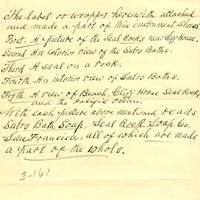 The label or wrapper herewith attached
and made a part of this instrument shows
First. A picture of the Seal Rocks, near Cliff House.
Second An interior view of the Sutro Baths.
Third A seal on a rock.
Fourth An interior view of Sutro Baths.
Fifth A view of Beach, Cliff House, Seal Rocks,
and the Pacific Ocean.
With each picture above mentioned reads
Sutro Bath Soap, Seal Rock Soap Co.
San Francisco. all of which are made
a part of the whole.
3-161